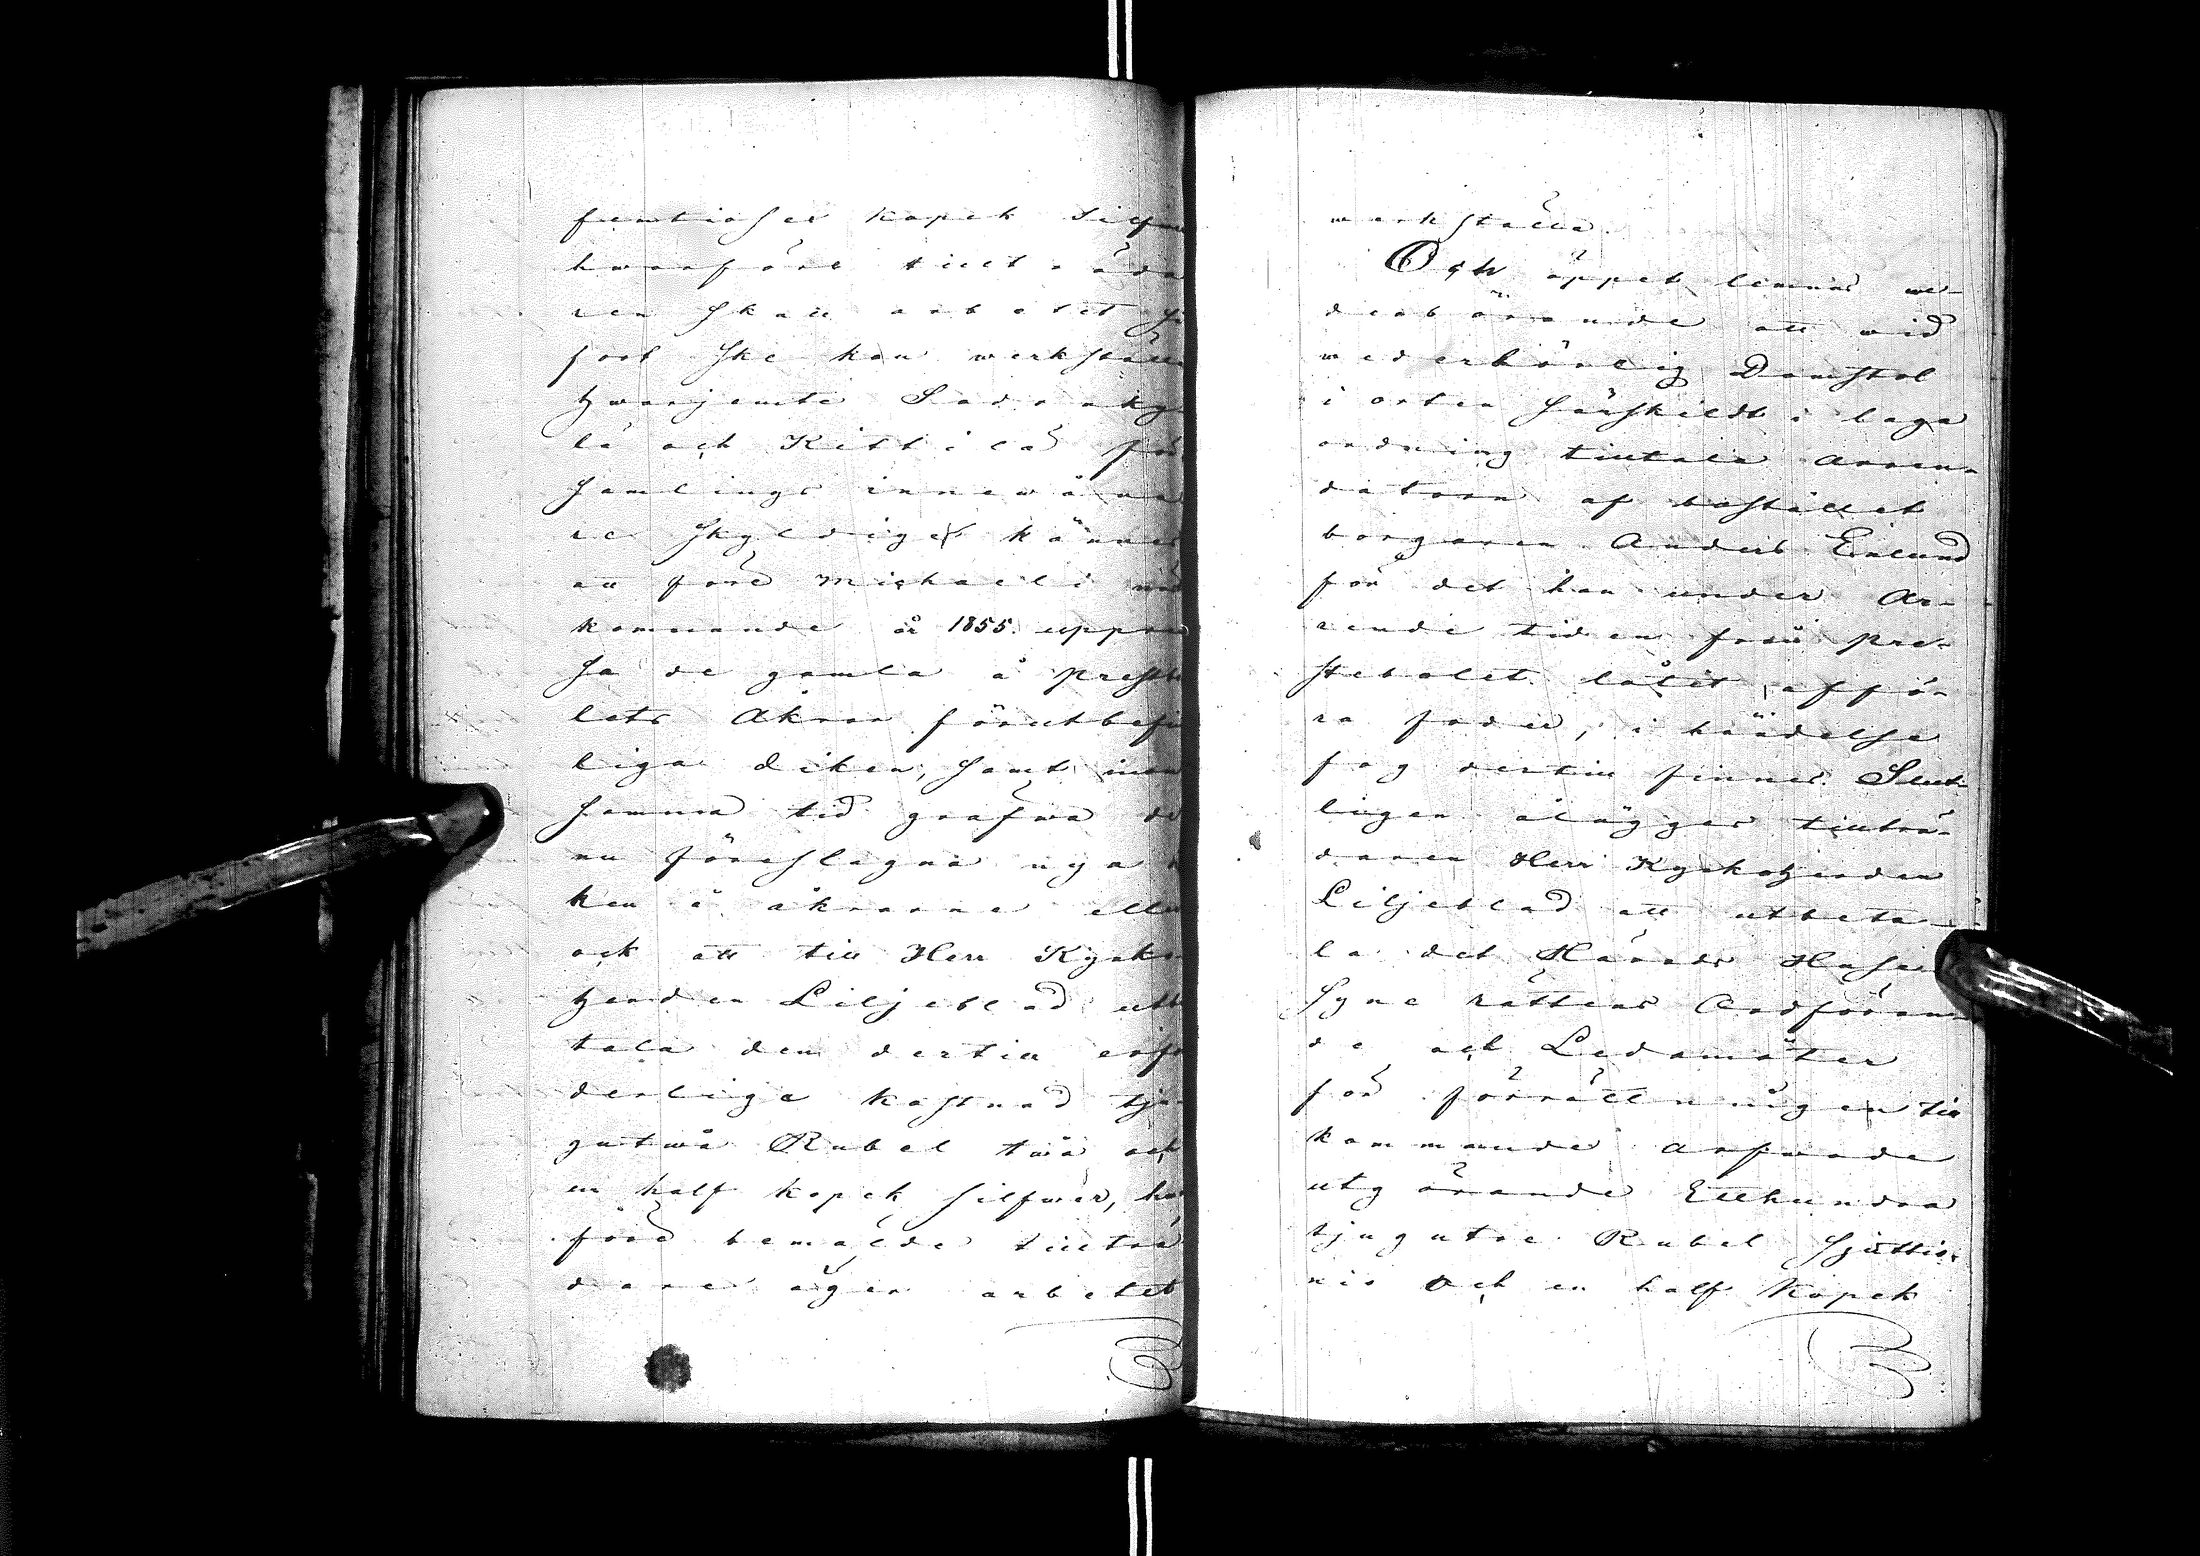 femtiosex kopek Silfwer
hwarföre tillträda
ren skall arbetet så
fort ske kan werkställa
hwarjemte Sodankylä
lä och Kittilä för
samlings innewåna
re skyldiga kännas
att före Michaeli näst
kommande år 1855. uppren
sa de gamla å prestbo
lets Åkrar förutbefin
liga diken, samt inom
samma tid gräfwa de
nu föreslagna nya di
ken i åkrarne eller
ock att till Herr Kyrko
herden Liljeblad utbe
tala den dertill erfor
derliga kostnad tju
gutwå Rubel twå och
en half kopek silfwer, hwar
före bemälde tillträ
dare äger arbetet
werkställa.
Och öppet lemnas we-
derbörande att wid
wederbörlig Domstol
i orten särskildt i laga
ordning tilltala Arren-
datorn af bostället
borgaren Anders Enlund
för det han under Ar-
rende tiden från pre-
stebolet låtit afför-
ra foder, i händelse
fog dertill finnes. Slut-
ligen ålägges tillträ-
daren Herr Kyrkoherden
Liljeblad att utbeta-
la det Härads Husen
Syne rättens Ordföran-
de och Ledamöter
för förrättningen till
kommande arfwode
utgörande Etthundra
tjugutre Rubel sjuttio-
nio och en half Kopek